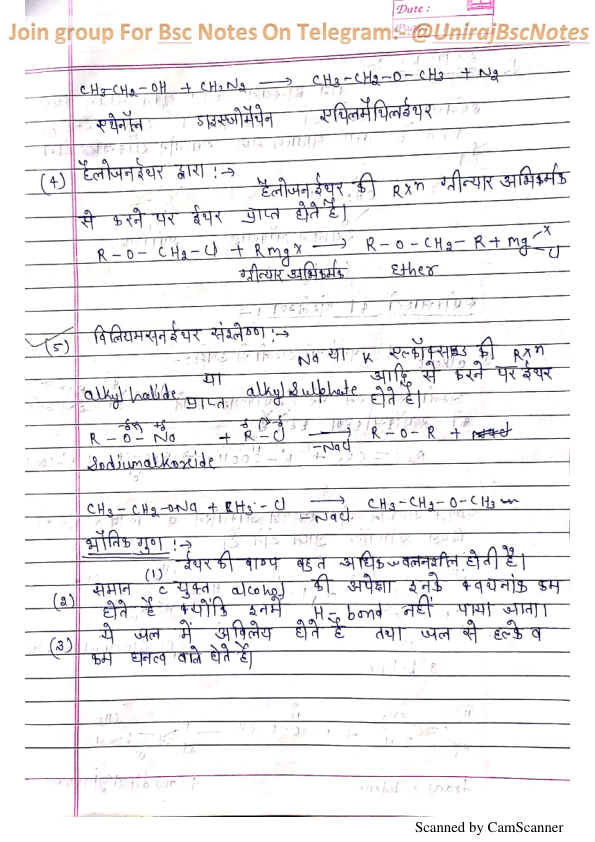 Date :
Join group For Bsc Notes On Telegram:- @UnirajBscNotes
CH3-CH2-OH + CH2N2 → CH3-CH2-O-CH3 + N2
एथेनॉल डाइएजोमेथेन एथिलमेथिलईथर
(4) हैलोजनईथर द्वारा :→
हैलोजनईथर की Rxn ग्रीन्यार अभिकर्मक
से करने पर ईथर प्राप्त होते है।
R-O-CH2-Cl + Rmgx → R-O-CH2-R + mg x Cl
ग्रीन्यार अभिकर्मक Ether
(5) विलियमसनईथर संश्लेषण :→
Na या K एल्कॉक्साइड की Rxn
alkyl halide या alkyl sulphate आदि से करने पर ईथर
प्राप्त होते है।
R-O-Na + R-Cl → R-O-R +
-NaCl
Sodiumalkoxide
CH3-CH2-ONa + CH3-Cl → CH3-CH2-O-CH3
-NaCl
भौतिक गुण :→
(1) ईथर की वाष्प बहुत अधिक ज्वलनशील होती है।
(2) समान C युक्त alcohol की अपेक्षा इनके क्वथनांक कम
होते है क्योंकि इनमें H-bond नहीं पाया जाता।
(3) ये जल में अविलेय होते है तथा जल से हल्के व
कम घनत्व वाले होते है।
Scanned by CamScanner